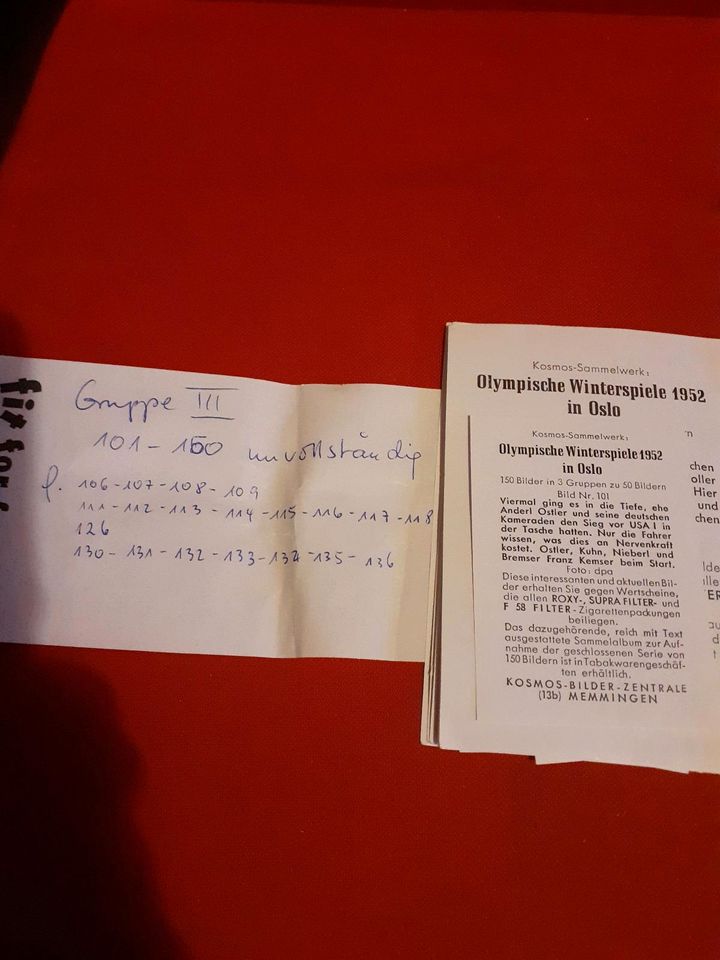 Gruppe III
101 - 150 unvollständig
f. 106 - 107 - 108 - 109
111 - 112 - 113 - 114 - 115 - 116 - 117 - 118
126
130 - 131 - 132 - 133 - 134 - 135 - 136
Kosmos-Sammelwerk:
Olympische Winterspiele 1952
in Oslo
Kosmos-Sammelwerk:
Olympische Winterspiele 1952
in Oslo
150 Bilder in 3 Gruppen zu 50 Bildern
Bild Nr. 101
Viermal ging es in die Tiefe, ehe
Anderl Ostler und seine deutschen
Kameraden den Sieg vor USA I in
der Tasche hatten. Nur die Fahrer
wissen, was dies an Nervenkraft
kostet. Ostler, Kuhn, Nieberl und
Bremser Franz Kemser beim Start.
Foto: dpa
Diese interessanten und aktuellen Bil-
der erhalten Sie gegen Wertscheine,
die allen ROXY-, SUPRA FILTER- und
F 58 FILTER-Zigarettenpackungen
beiliegen.
Das dazugehörende, reich mit Text
ausgestattete Sammelalbum zur Auf-
nahme der geschlossenen Serie von
150 Bildern ist in Tabakwarengeschäf-
ten erhältlich.
KOSMOS-BILDER-ZENTRALE
(13b) MEMMINGEN
chen
oller
Hier
und
chen